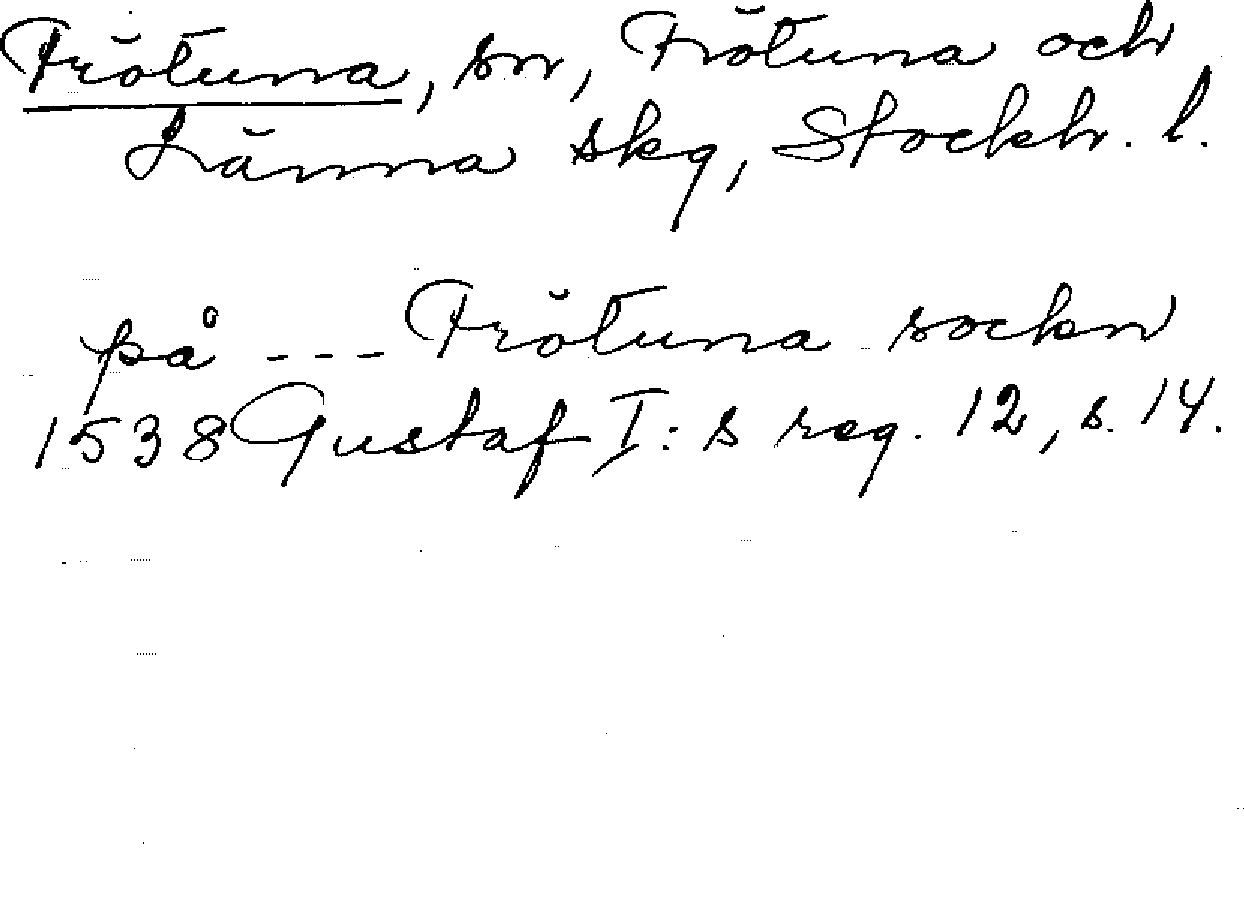 Frötuna, sn, Frötuna och
Länna skg, Stockh. l.
på --- Frötuna sockn
1538 Gustaf I:s reg. 12, s. 14.